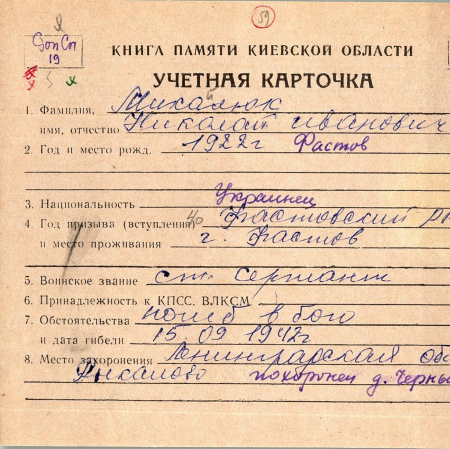 59
Доп Сп
19
КНИГА ПАМЯТИ КИЕВСКОЙ ОБЛАСТИ
УЧЕТНАЯ КАРТОЧКА
1. Фамилия, Михалюк
имя, отчество Николай Иванович
2. Год и место рожд. 1922г Фастов
3. Национальность Украинец
4. Год призыва (вступления) 40 Фастовский
и место проживания г. Фастов
5. Воинское звание ст. сержант
6. Принадлежность к КПСС, ВЛКСМ
7. Обстоятельства погиб в бою
и дата гибели 15.09 1942г
8. Место захоронения Ленинградская об
похоронен д.